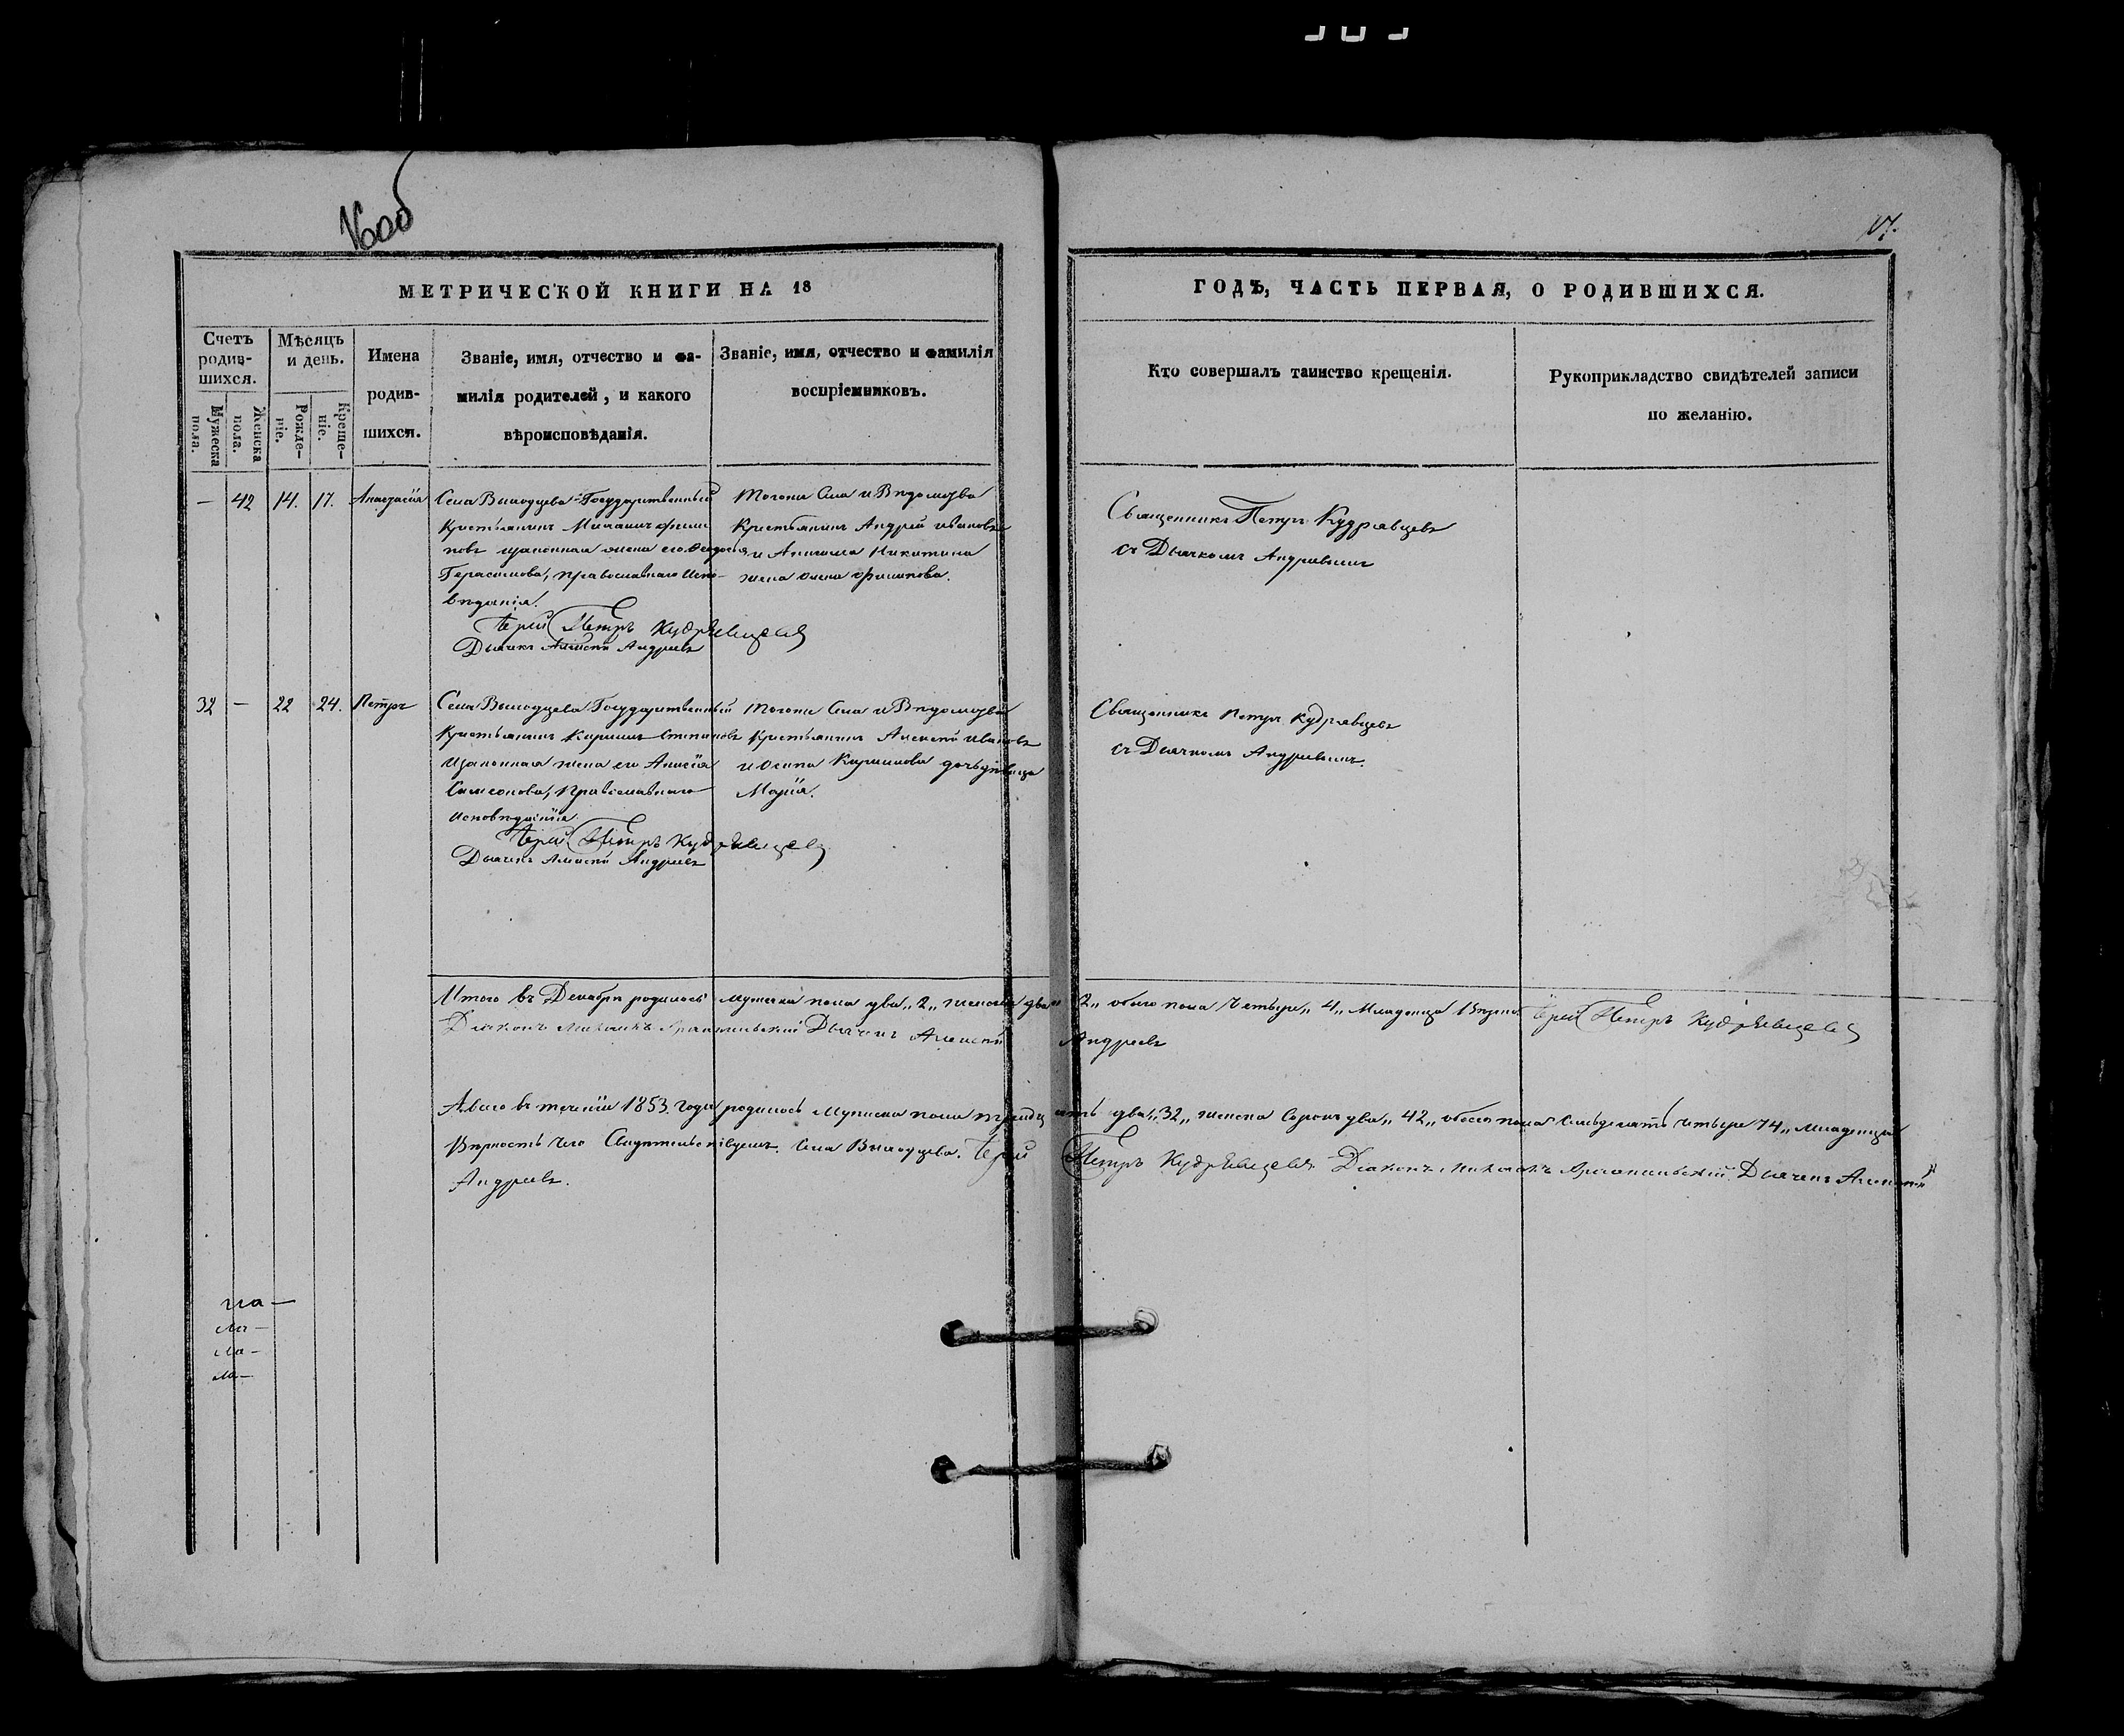 16об
17.
МЕТРИЧЕСКОЙ КНИГИ НА 18
ГОДѢ, ЧАСТЬ ПЕРВАЯ, О РОДИВШИХСЯ.
Счетъ родив-
шихся.
Мужеска пола.
Женска пола.
Мѣсяцъ и день.
Рожде-
ніе.
Креще-
ніе.
Имена
родив-
шихся.
Званіе, имя, отчество и фа-
милія родителей, и какого
вѣроисповѣданія.
Званіе, имя, отчество и фамилія
воспріемниковъ.
Кто совершалъ таинство крещенія.
Рукоприкладство свидѣтелей записи
по желанію.
— 42 14. 17. Анастасія
Села Выходцева Государственный
Крестьянинъ
законная жена его Федосья
Герасимова, православнаго Испо-
вѣданія.
Іерей Петръ Кудрявцевъ
Дьячекъ Алексѣй Андреевъ
Тогоже Села и Вѣдомства
Крестьянинъ Андрей Ивановъ
и Никитина
жена Филипова.
Священникъ Петръ Кудрявцевъ
съ Дьячкомъ Андреевымъ
32 — 22 24. Петръ
Села Выходцева Государственный
Крестьянинъ Степановъ
Изаконная жена его Анисія
Самсонова, Православнаго
исповѣданія.
Іерей Петръ Кудрявцевъ
Дьячекъ Алексѣй Андреевъ
Тогоже Села и Вѣдомства
Крестьянинъ Алексѣй Ивановъ
и Осипа дочь дѣвица
Марія.
Священникъ Петръ Кудрявцевъ
съ Дьячкомъ Андреевымъ.
Итого въ Декабрѣ родилось Мужеска пола два „2„ женска два „2„ обоего пола Четыре „4„ Младенца Іерей Петръ Кудрявцевъ
Діаконъ Дьячекъ Алексѣй Андреевъ
А всего въ теченіи 1853. Года родилось Мужеска пола тридцать два „32„ женска Сорокъ два „42„ обоего пола Семьдесятъ четыре 74„ Младенца
Вѣрность чего Свидѣтельствуемъ. Села Выходцева. Іерей Петръ Кудрявцевъ Діаконъ Дьячекъ Алексѣй
Андреевъ.